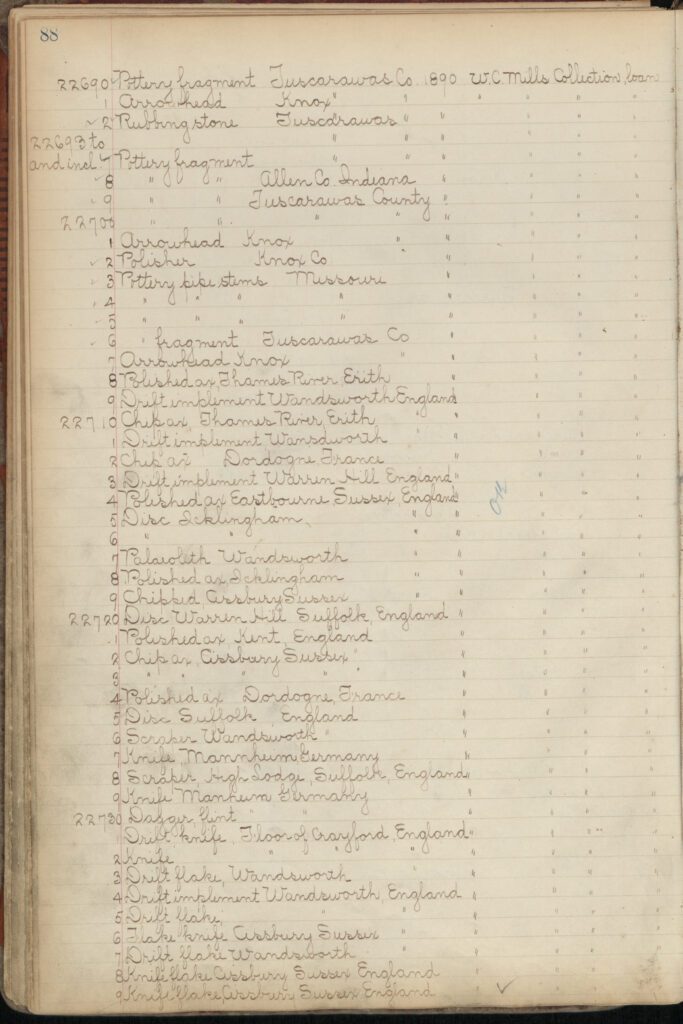 88
22690 Pottery fragment Tuscarawas Co. 1890 W.C. Mills Collection, loan
1 Arrowhead Knox " " " " " "
✓ 2 Rubbing stone Tuscarawas " " " " " "
22693 to " " " " " "
and incl 7 Pottery fragment " " " " " "
8 " " Allen Co. Indiana " " " "
9 " " Tuscarawas County " " " "
22700 " " " " " " " "
1 Arrowhead Knox " " " " "
✓ 2 Polisher Knox Co " " " "
✓ 3 Pottery pipe stems Missouri " " " "
4 " " " " " " " "
5 " " " " " " " "
✓ 6 " fragment Tuscarawas Co " " " "
7 Arrowhead Knox " " " " "
8 Polished ax, Thames River, Erith " " " "
9 Drift implement Wandsworth England " " " "
22710 Chip ax, Thames River, Erith " " " " "
1 Drift implement Wansdworth " " " " "
2 Chip ax Dordogne France " " " "
3 Drift implement Warren Hill England " " " "
4 Polished ax Eastbourne Sussex, England " " " "
OK
5 Disc Icklingham, " " " " "
6 " " " " " " "
7 Palaeolith Wandsworth " " " "
8 Polished ax, Icklingham " " " "
9 Chipped, Cissbury Sussex " " " "
22720 Disc Warren Hill Suffolk, England " " " "
1 Polished ax Kent, England " " " "
2 Chip ax, Cissbury Sussex " " " " "
3 " " " " " " " "
4 Polished ax Dordogne, France " " " "
5 Disc Suffolk, England " " " "
6 Scraper Wandsworth " " " " "
7 Knife, Mannheim, Germany " " " "
8 Scraper, High Lodge, Suffolk, England " " " "
9 Knife Manheim Germany " " " "
22730 Dagger, flint " " " " " "
1 Drift knife, Floor of Crayford, England " " " "
2 Knife " " " " " " "
3 Drift flake, Wandsworth " " " "
4 Drift implement Wandsworth, England " " " "
5 Drift flake, " " " " " "
6 Flake knife Cissbury Sussex " " " " "
7 Drift flake Wandsworth " " " " "
8 Knife flake Cissbury Sussex England " " " "
9 Knife flake Cissbury Sussex England " ✓ " " "